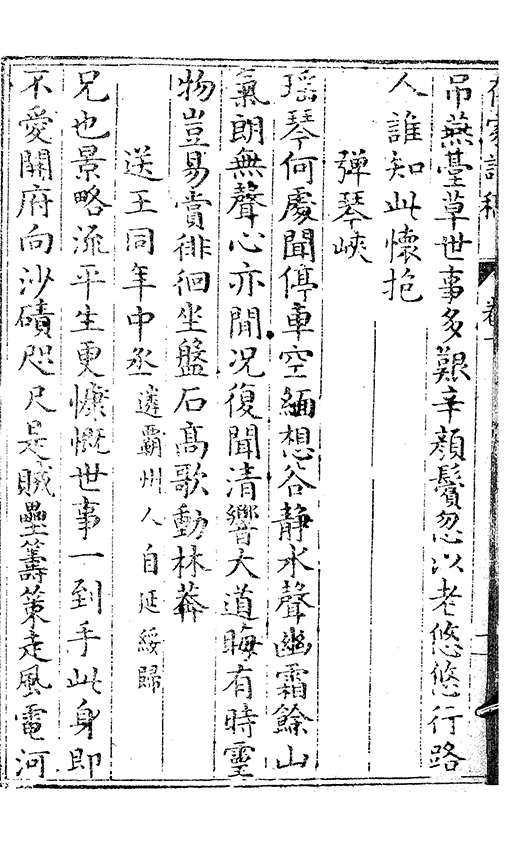 吊燕臺草世事多艱辛顔鬢忽以老悠悠行路
人誰知此懷抱
彈琴峽
瑶琴何處聞停車空緬想谷静水聲幽霜餘山
氣朗無聲心亦閒况復聞清響大道晦有時靈
物豈易賞徘徊坐盤石高歌動林莽
送王同年中丞遴霸州人自延綏歸
兄也景略流平生更慷慨世事一到手此身即
不愛開府向沙磧咫尺是賊壘籌策走風雷河